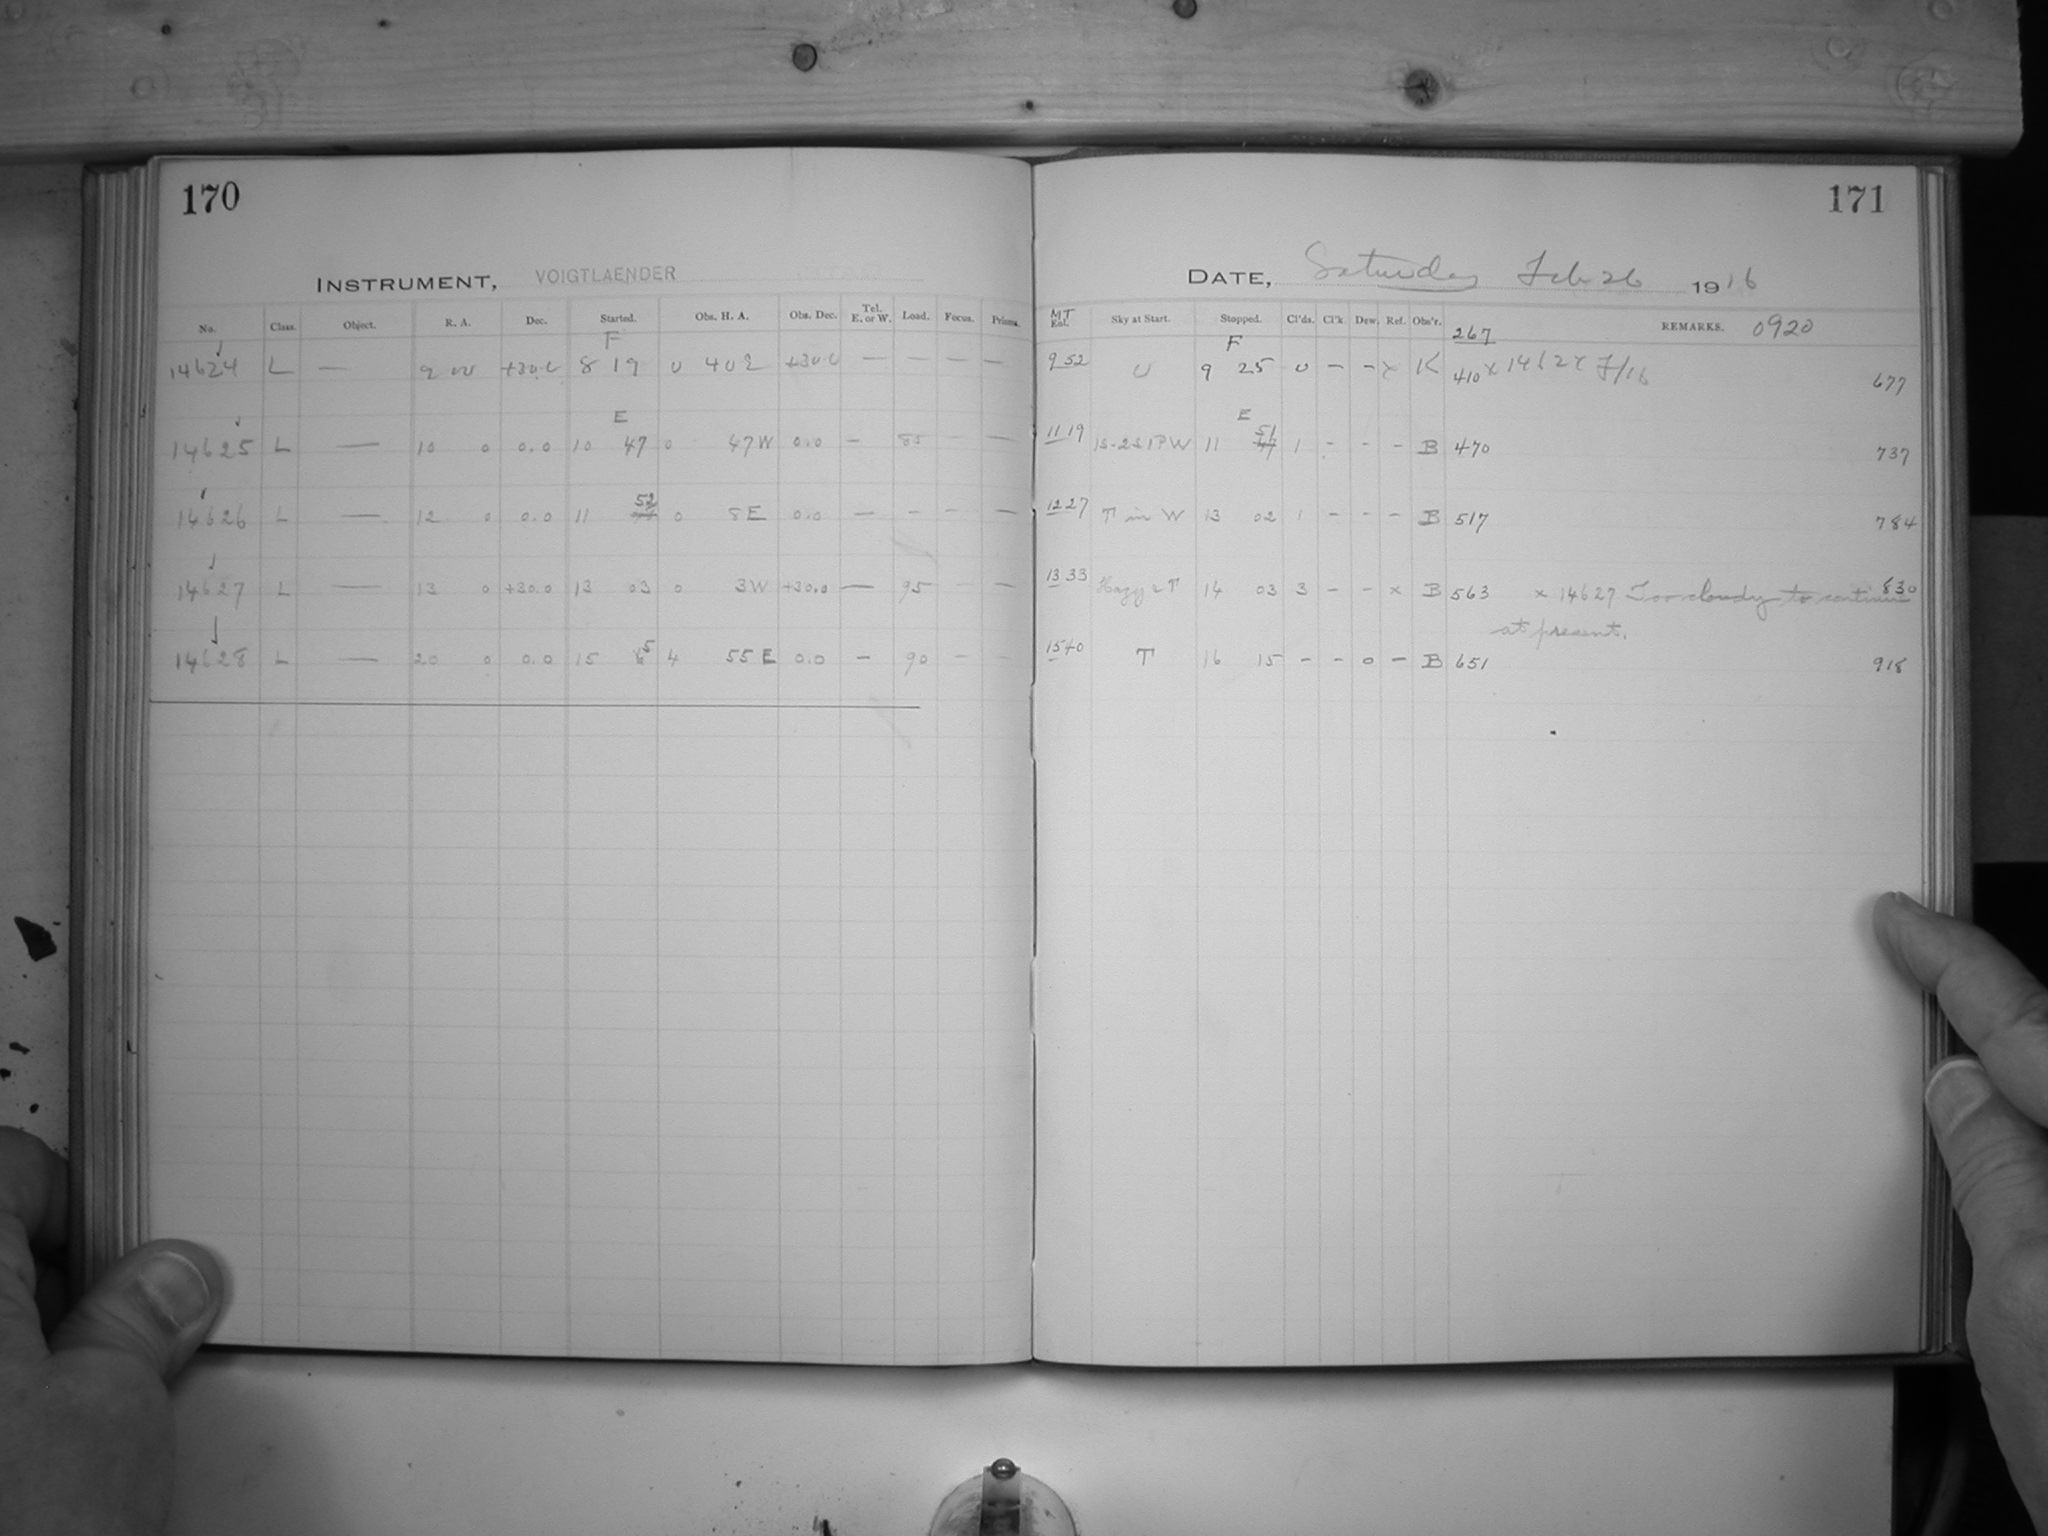 170
INSTRUMENT, VOIGTLAENDER
No. Class. Object. R. A. Dec. Started. Obs. H. A. Obs. Dec. Tel. E. or W. Load. Focus. Prisms.
F
14624 L — 9 00 +30.0 8 19 0 40 E +30.0 — — — —
E
14625 L — 10 0 0.0 10 47 0 47 W 0.0 — 85 — —
52
14626 L — 12 0 0.0 11 0 8 E 0.0 — — — —
14627 L — 13 0 +30.0 13 03 0 3 W +30.0 — 95 — —
14628 L — 20 0 0.0 15 5 4 55 E 0.0 — 90 — —
171
DATE, Saturday Feb 26 1916
MT
Sky at Start. Stopped. Cl'ds. Cl'k. Dew. Ref. Obs'r. 267 REMARKS. 0920
F
9 52 0 9 25 0 — — x K 410 x 14624 F/16 677
E
51
11 19 1S-2S1PW 11 47 1 - - - B 470 737
12 27 T in W 13 02 1 - - - B 517 784
13 33 Hazy 2T 14 03 3 - - x B 563 x 14627 Too cloudy to continue 830
at present.
15 40 T 16 15 - - 0 - B 651 918